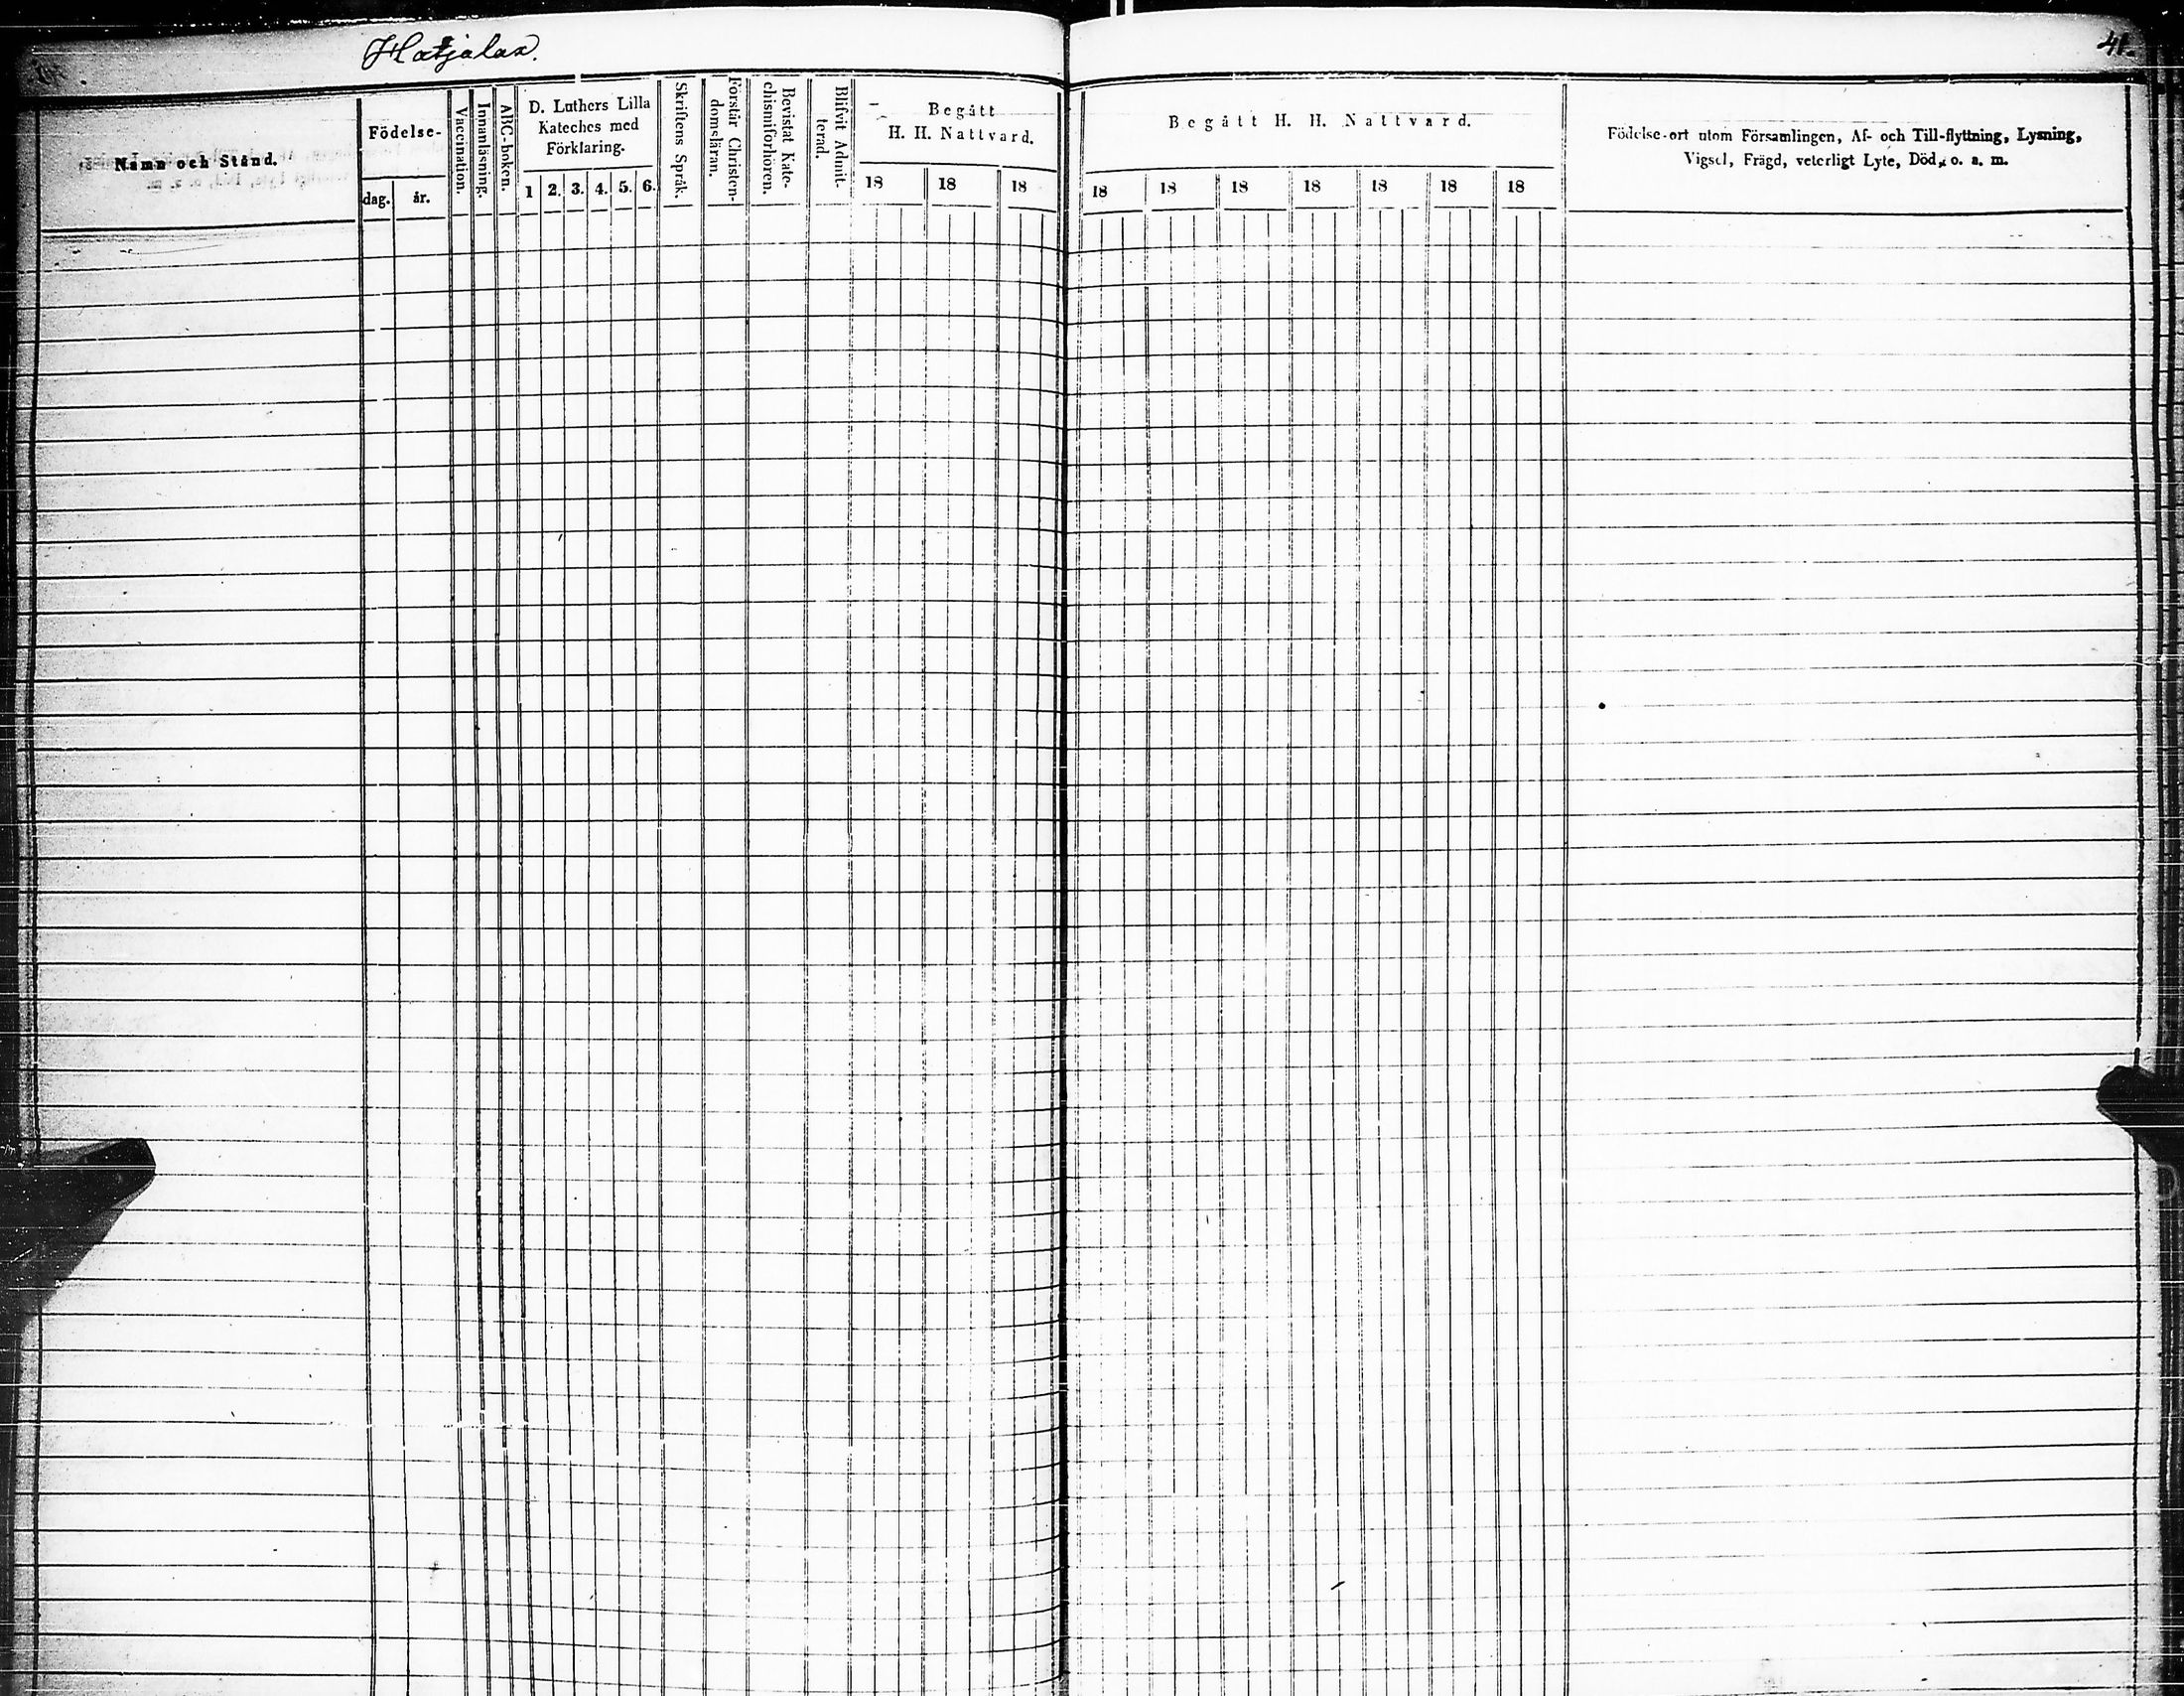 Hatjalax.
41.
Namn och Stånd.
Födelse-
dag.
år.
Vaccination.
Innanläsning.
ABC-boken.
D. Luthers Lilla
Kateches med
Förklaring.
1 2. 3. 4. 5. 6.
Skriftens Språk.
Förstår Christen-
domsläran.
Bevistat Kate-
chismiförhören.
Blifvit Admit-
terad.
Begått
H. H. Nattvard.
18 18 18
Begått H. H. Nattvard.
18 18 18 18 18 18 18
Födelse-ort utom Församlingen, Af- och Till-flyttning, Lysning,
Vigsel, Frägd, veterligt Lyte, Död, o. s. m.